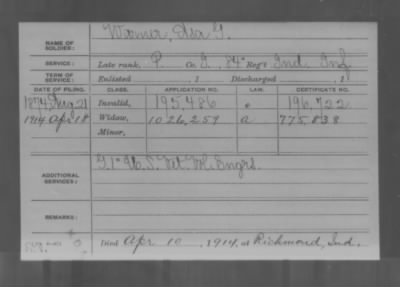 Warner, Asa G.
NAME OF SOLDIER:
SERVICE: Late rank, P. Co. I, 84" Reg't Ind. Inf.
TERM OF SERVICE: Enlisted , 1 Discharged , 1
DATE OF FILING. CLASS. APPLICATION NO. LAW. CERTIFICATE NO.
1874, Aug 21 Invalid, 195,486 196,722
1914 Apr 18 Widow, 1026,259 a 775,838
Minor,
ADDITIONAL SERVICES: G 1" U.S. Vet. Vol. Engrs.
REMARKS:
Died Apr 10, 1914, at Richmond, Ind.